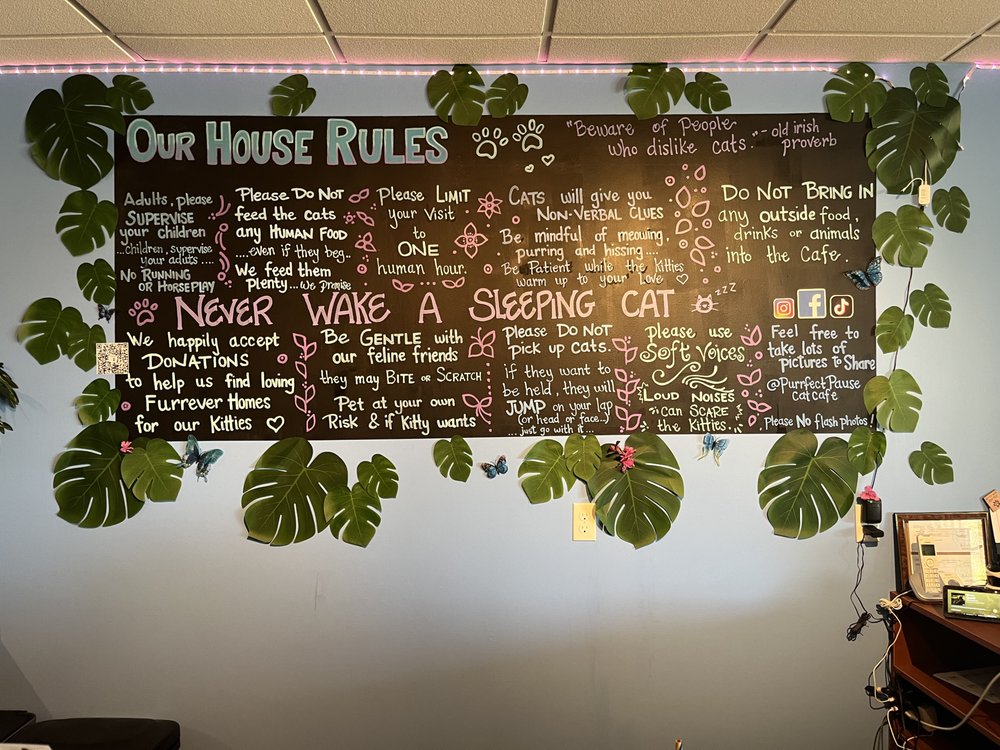 OUR HOUSE RULES
"BEWARE OF PEOPLE
WHO DISLIKE CATS." - old irish
proverb
Adults, please
SUPERVISE
your children
...children, supervise
your aduts....
NO RUNNING
OR HORSEPLAY
Please Do Not
feed the cats
any HUMAN FOOD
....even if they beg..
We feed them
plenty...We Promise
Please LIMIT
your Visit
to
ONE
human hour.
CATS will give you
NON-VERBAL CLUES
Be mindful of meowing,
purring and hissing....
Be Patient while the Kitties
warm up to your Love
DO NOT BRING IN
any outside food,
drinks or animals
into the Cafe.
NEVER WAKE A SLEEPING CAT
zzz
We happily accept
DONATIONS
to help us find loving
Furrever Homes
for our Kitties
Be GENTLE with
our feline friends
they may BITE OR SCRATCH
Pet at your own
Risk & if Kitty wants
Please DO NOT
pick up cats.
if they want to
be held, they will
JUMP on your lap
(or head or face...)
...just go with it...
Please use
Soft Voices
LOUD NOISES
can SCARE
the Kitties.
Feel free to
take lots of
pictures to Share
@PurrfectPause
catcafe
Please No flash photos!